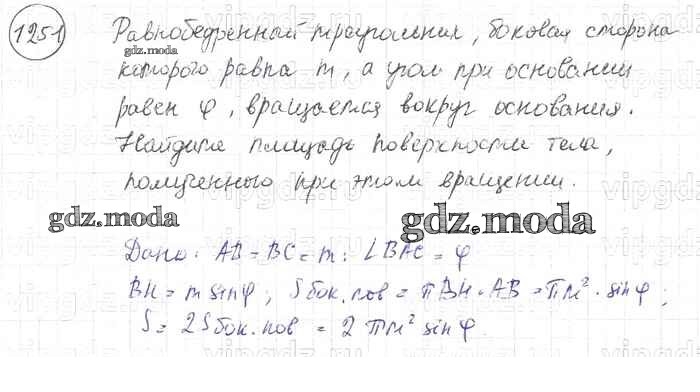 1251 Равнобедренный треугольник, боковая сторона
gdz.moda
которого равна m, а угол при основании
равен φ, вращается вокруг основания.
Найдите площадь поверхности тела,
полученного при этом вращении.
gdz.moda gdz.moda
Дано: AB = BC = m; ∠BAC = φ
BH = m sinφ; Sбок.пов = πBH·AB = πm²·sinφ;
S = 2Sбок.пов = 2πm² sinφ.